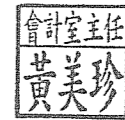 會計室主任
黃美珍